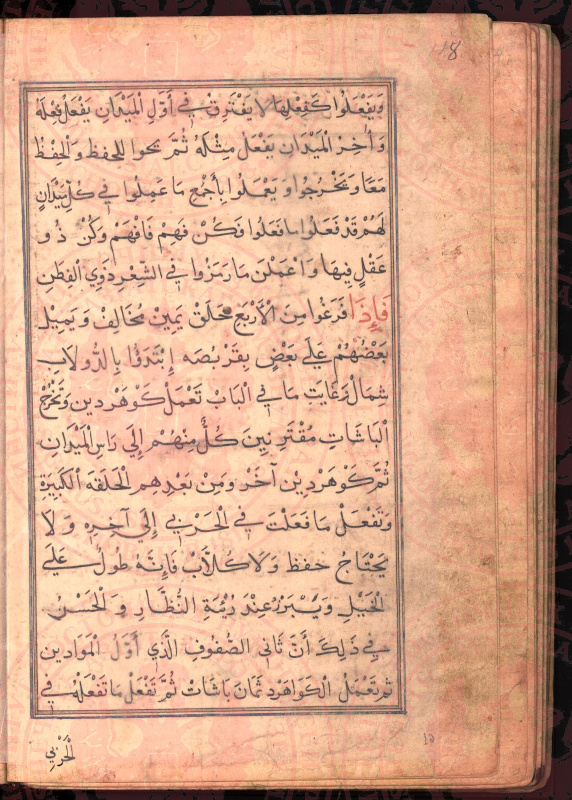 18
وَيَفْعَلُوا كَفِعْلِهَا لَا يَفْتَرِقْ فِي أَوَّلِ الْمَيْدَانِ يَفْعَلْ فِعْلَهْ
وَأَخِرْ الْمَيْدَانِ يَفْعَلْ مِثْلَهْ ثُمَّ للحِفظِ وَالْحِفْظُ
مَعًا وَيَخْرُجُوا وَيَعْمَلُوا بِأَجْمَعِ مَا عَمِلُوا فِي كُلِّ مَيْدَانٍ
لَهُمْ قَدْ فَعَلُوا مَا فَعَلُوا فَكُنْ فَهِمْ فَافْهَمْ وَكُنْ ذُو
عَقْلٍ فِيهَا وَاعْمَلَنْ مَا رَمَزُوا فِي الشِّعْرِ ذَوِي الْفِطَنِ
فَإِذَا فَرَغُوا مِنَ الْأَرْبَعِ حَلَقْ يَمِينْ مُخَالِفْ وَيَمِيلُ
بَعْضُهُمْ عَلَى بَعْضٍ بِقَرْبُصَهِ إِبْتَدَؤُا بِالدُّولَابِ
شِمَالْ تَمَّ مَا فِي الْبَابِ تَعْمَلْ كَوَاهَرْدِينْ وَتَخْرُجُ
الْبَاشَاتِ مُقْتَرِنِينَ كُلٌّ مِنْهُمْ إِلَى رَاسِ الْمَيْدَانِ
ثُمَّ كَوَاهَرْدِينْ آخَرْ وَمِنْ بَعْدِهِمِ الْحَلَقَةِ الْكَبِيرَةِ
وَتَفْعَلْ مَا فَعَلْتَ فِي الْحَرْبِي إِلَى آخِرِهِ وَلَا
يَحْتَاجُ حِفْظ وَلَا كُلَّابْ فَإِنَّهُ طُولْ عَلَى
الْخَيْلِ وَيَبْرُدُ عِنْدَ رُؤْيَةِ النُّظَّارِ وَالْحَسَنُ
فِي ذَلِكَ أَنْ تَأْتِي الصُّفُوفِ الَّذِي أَوَّلَ الْمَوَادِين
ثم تَعْمَلُ الْكَوَاهَرْد ثَمَانَ بَاشَاتْ ثُمَّ تَفْعَلْ مَا تَفْعَلْهُ فِي
الْحَرْبِي
١٥